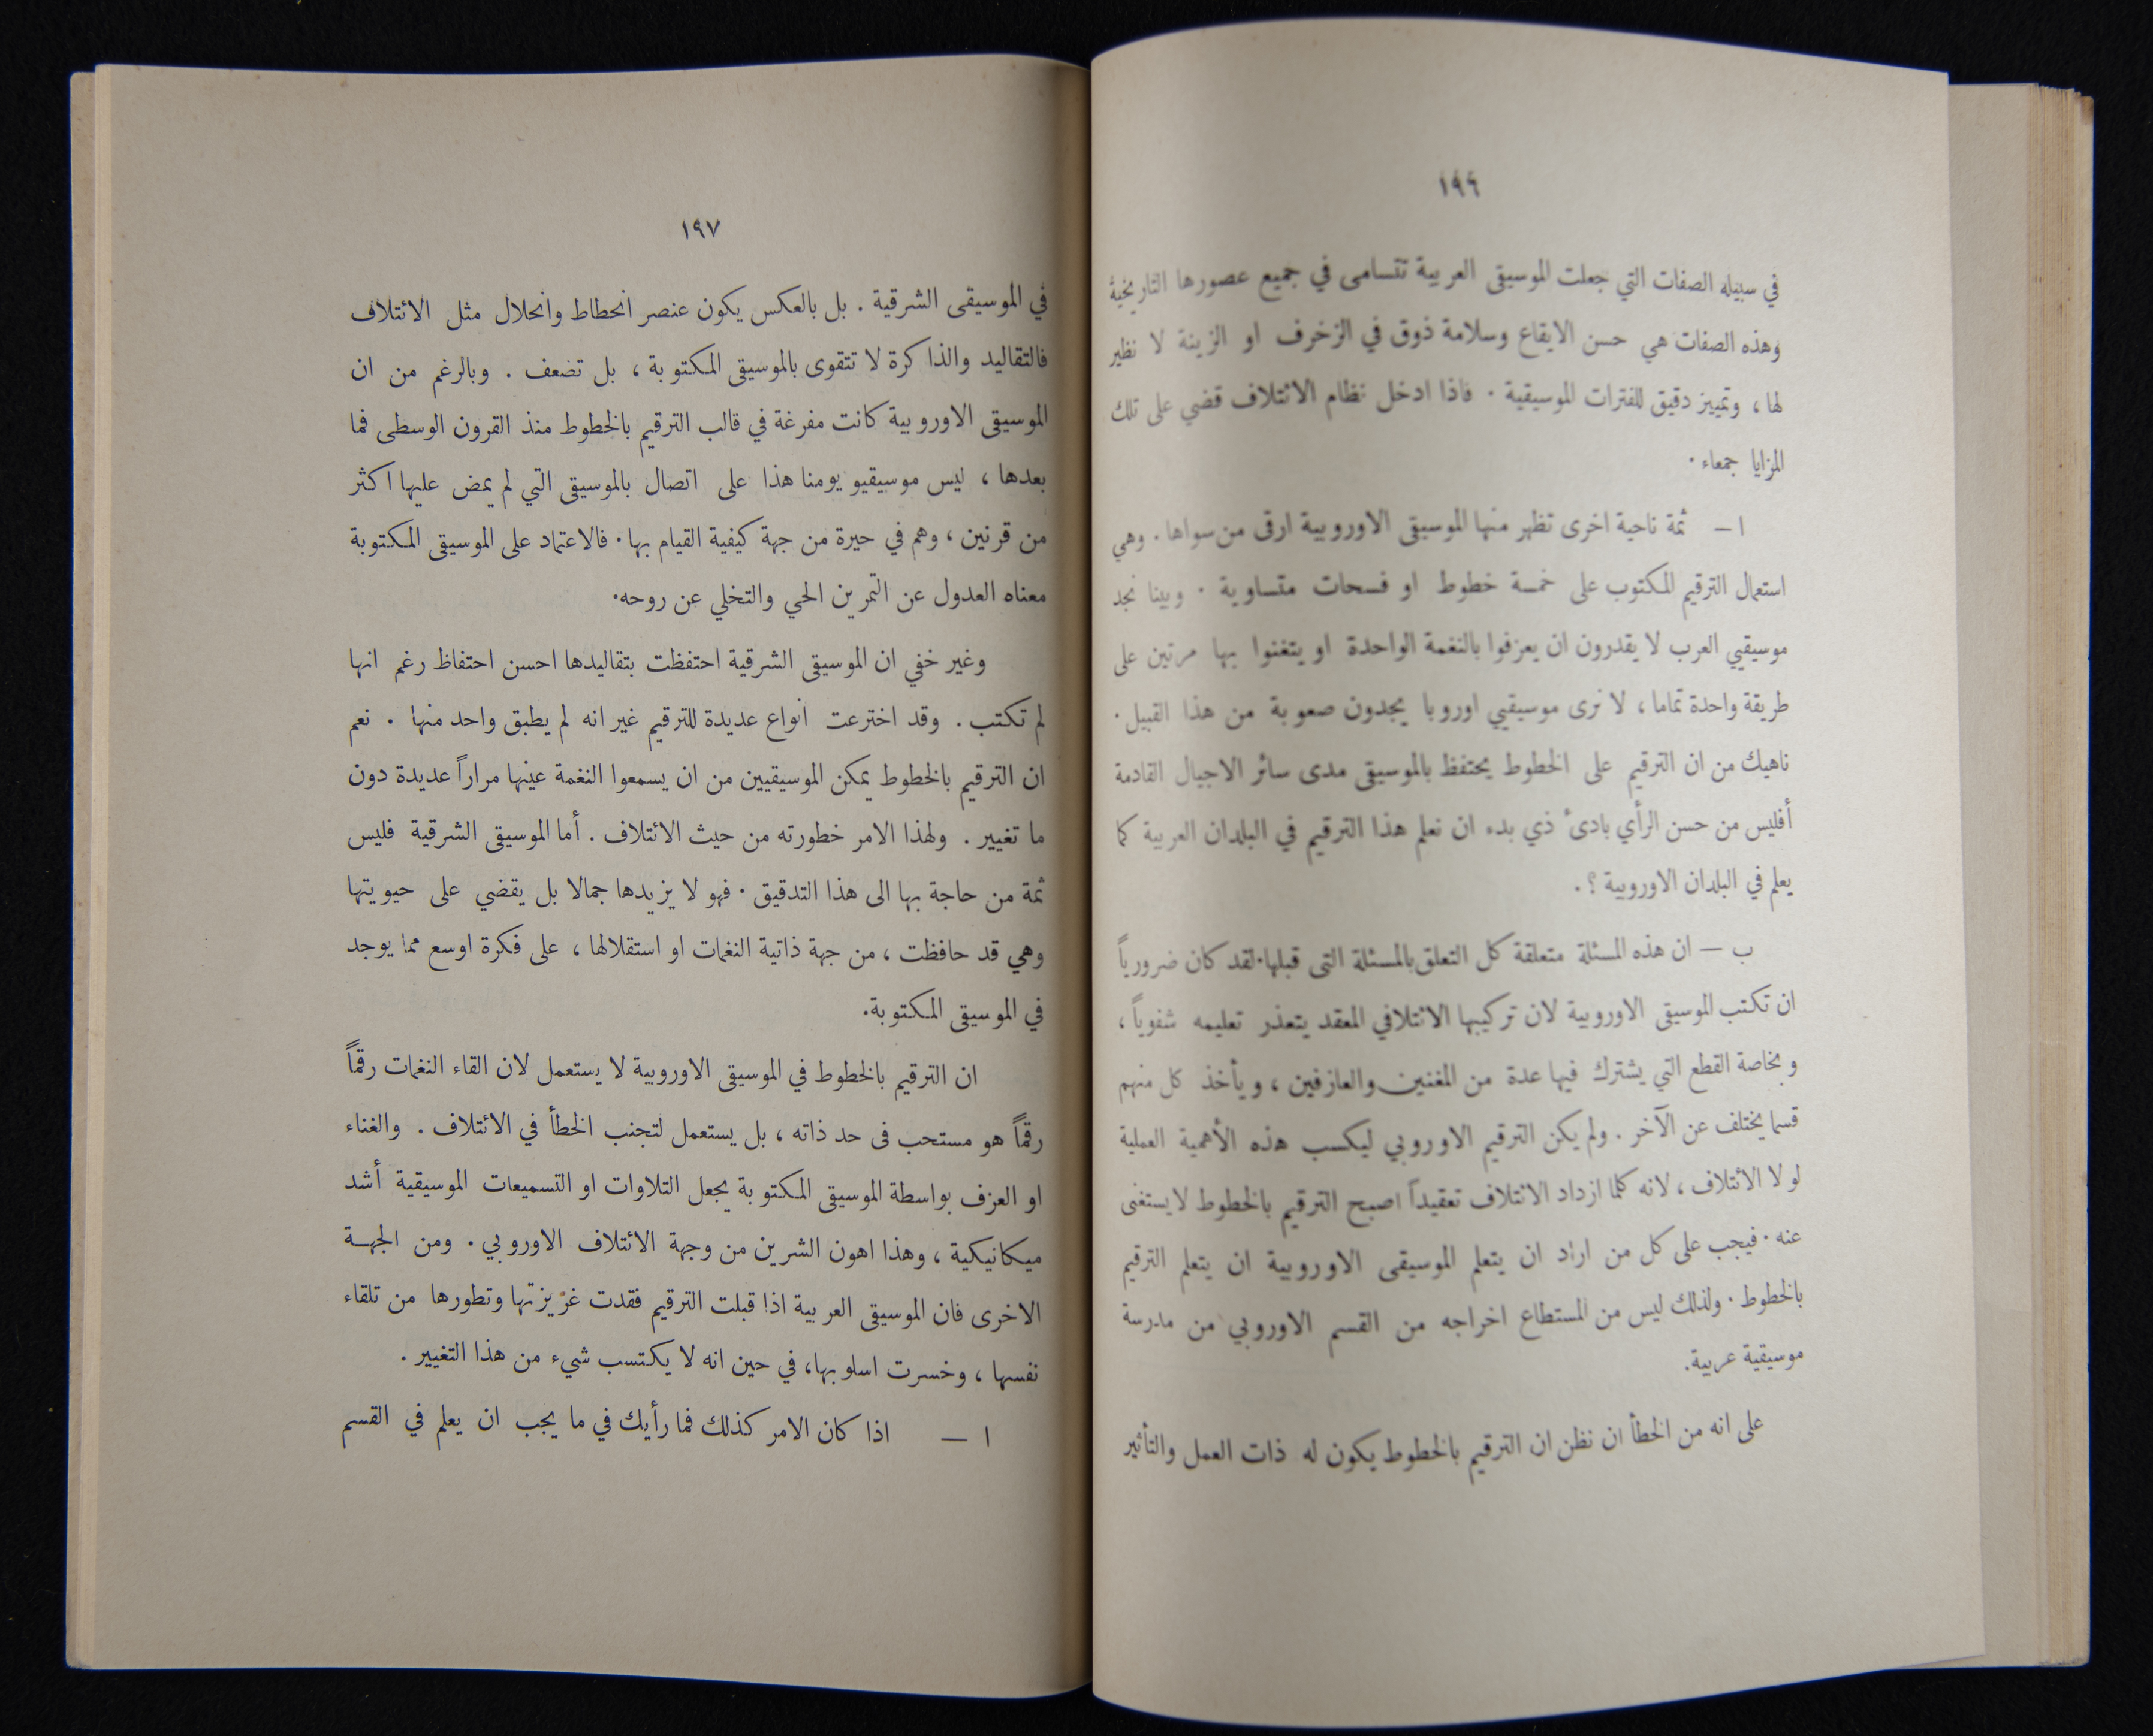 ١٩٦
في سبيله الصفات التي جعلت الموسيقى العربية تتسامى في جميع عصورها التاريخية
وهذه الصفات هي حسن الايقاع وسلامة ذوق في الزخرف او الزينة لا نظير
لها ، وتمييز دقيق للفترات الموسيقية . فاذا ادخل نظام الائتلاف قضي على تلك
المزايا جمعاء .
ا — ثمة ناحية اخرى تظهر منها الموسيقى الاوروبية ارقى من سواها . وهي
استعمال الترقيم المكتوب على خمسة خطوط او فسحات متساوية . وبينا نجد
موسيقيي العرب لا يقدرون ان يعزفوا بالنغمة الواحدة او يتغنوا بها مرتين على
طريقة واحدة تماما ، لا نرى موسيقيي اوروبا يجدون صعوبة من هذا القبيل .
ناهيك من ان الترقيم على الخطوط يحتفظ بالموسيقى مدى سائر الاجيال القادمة
أفليس من حسن الرأي بادىء ذي بدء ان نعلم هذا الترقيم في البلدان العربية كما
يعلم في البلدان الاوروبية ؟ .
ب — ان هذه المسئلة متعلقة كل التعلق بالمسئلة التى قبلها . لقد كان ضرورياً
ان تكتب الموسيقى الاوروبية لان تركيبها الائتلافي المعقد يتعذر تعليمه شفوياً ،
وبخاصة القطع التي يشترك فيها عدة من المغنين والعازفين ، ويأخذ كل منهم
قسما يختلف عن الآخر . ولم يكن الترقيم الاوروبي ليكسب هذه الأهمية العملية
لولا الائتلاف ، لانه كلما ازداد الائتلاف تعقيداً اصبح الترقيم بالخطوط لا يستغنى
عنه . فيجب على كل من اراد ان يتعلم الموسيقى الاوروبية ان يتعلم الترقيم
بالخطوط . ولذلك ليس من المستطاع اخراجه من القسم الاوروبي من مدرسة
موسيقية عربية .
على انه من الخطأ ان نظن ان الترقيم بالخطوط يكون له ذات العمل والتأثير
١٩٧
في الموسيقى الشرقية . بل بالعكس يكون عنصر انحطاط وانحلال مثل الائتلاف
فالتقاليد والذاكرة لا تتقوى بالموسيقى المكتوبة ، بل تضعف . وبالرغم من ان
الموسيقى الاوروبية كانت مفرغة في قالب الترقيم بالخطوط منذ القرون الوسطى فما
بعدها ، ليس موسيقيو يومنا هذا على اتصال بالموسيقى التي لم يمض عليها اكثر
من قرنين ، وهم في حيرة من جهة كيفية القيام بها . فالاعتماد على الموسيقى المكتوبة
معناه العدول عن التمرين الحي والتخلي عن روحه .
وغير خفي ان الموسيقى الشرقية احتفظت بتقاليدها احسن احتفاظ رغم انها
لم تكتب . وقد اخترعت انواع عديدة للترقيم غير انه لم يطبق واحد منها . نعم
ان الترقيم بالخطوط يمكن الموسيقيين من ان يسمعوا النغمة عينها مراراً عديدة دون
ما تغيير . ولهذا الامر خطورته من حيث الائتلاف . أما الموسيقى الشرقية فليس
ثمة من حاجة بها الى هذا التدقيق . فهو لا يزيدها جمالا بل يقضي على حيويتها
وهي قد حافظت ، من جهة ذاتية النغمات او استقلالها ، على فكرة اوسع مما يوجد
في الموسيقى المكتوبة .
ان الترقيم بالخطوط في الموسيقى الاوروبية لا يستعمل لان القاء النغمات رقماً
رقماً هو مستحب فى حد ذاته ، بل يستعمل لتجنب الخطأ في الائتلاف . والغناء
او العزف بواسطة الموسيقى المكتوبة يجعل التلاوات او التسميعات الموسيقية أشد
ميكانيكية ، وهذا اهون الشرين من وجهة الائتلاف الاوروبي . ومن الجهـة
الاخرى فان الموسيقى العربية اذا قبلت الترقيم فقدت غريزتها وتطورها من تلقاء
نفسها ، وخسرت اسلوبها ، في حين انه لا يكتسب شيء من هذا التغيير .
ا — اذا كان الامر كذلك فما رأيك في ما يجب ان يعلم في القسم